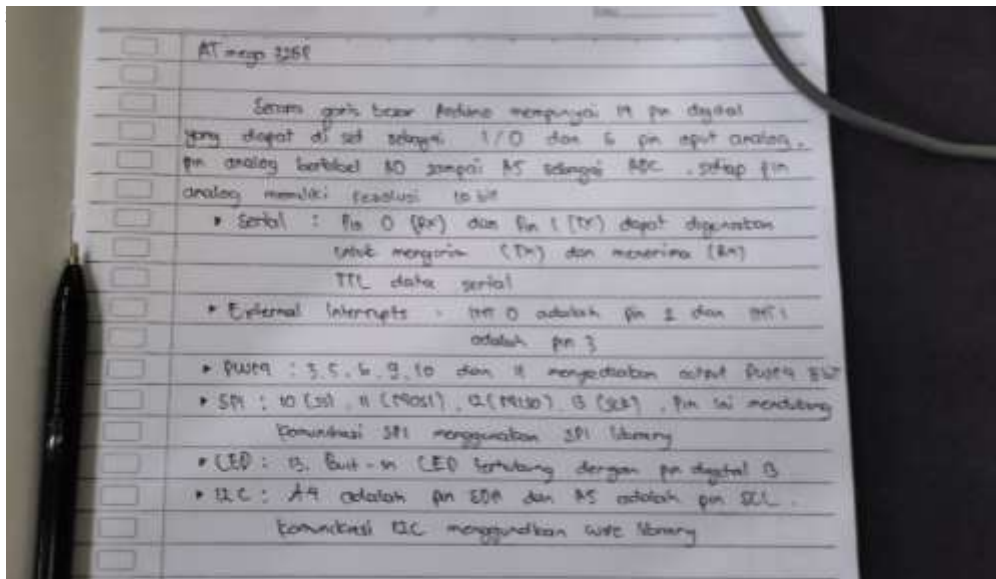 ATmega 328P
Secara garis besar Arduino mempunyai 14 pin digital
yang dapat di set sebagai I/O dan 6 pin input analog,
pin analog berlabel A0 sampai A5 sebagai ADC, setiap pin
analog memiliki resolusi 10 bit
• Serial : Pin 0 (RX) dan Pin 1 (TX) dapat digunakan
untuk mengirim (TX) dan menerima (RX)
TTL data serial
• External Interrupts : INT 0 adalah pin 2 dan INT 1
adalah pin 3
• PWM : 3, 5, 6, 9, 10 dan 11 menyediakan output PWM 8 bit
• SPI : 10 (SS), 11 (MOSI), 12 (MISO), 13 (SCK), Pin ini mendukung
komunikasi SPI menggunakan SPI library
• LED : 13, Built-in LED terhubung dengan pin digital 13
• I2C : A4 adalah pin SDA dan A5 adalah pin SCL.
komunikasi I2C menggunakan wire library